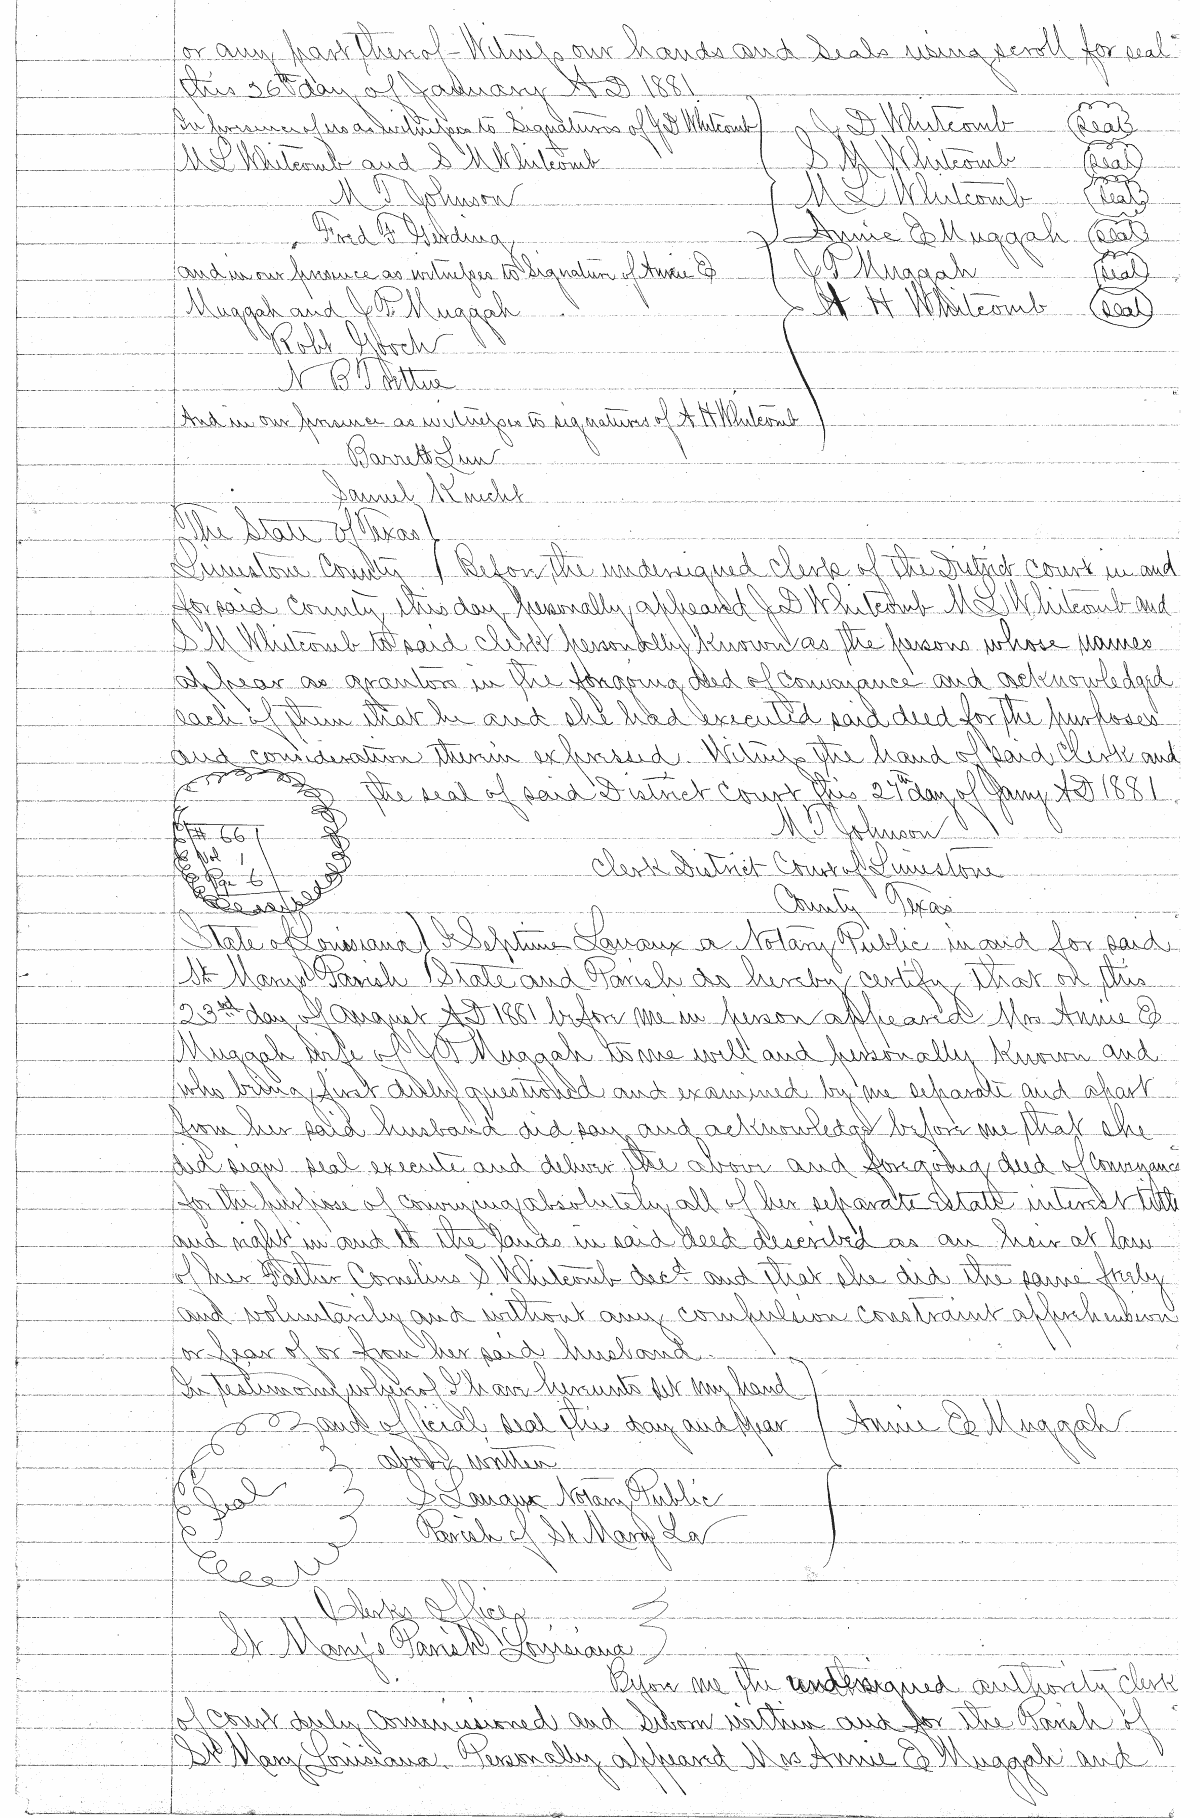 or any part thereof - Witness our hands and Seals using scroll for seal
this 26th day of January A D 1881
In presence of us as witnesses to Signatures of J D Whitcomb J D Whitcomb (seal)
M L Whitcomb and S M Whitcomb S M Whitcomb (seal)
M T Johnson M L Whitcomb (seal)
Fred F Annie E Muggah (seal)
and in our presence as witnesses to Signature of Annie E J T Muggah (seal)
Muggah and J T Muggah A H Whitcomb (seal)
Robt Gooch
N B
And in our presence as witnesses to signatures of A H Whitcomb
Barrett
Samuel Knight
The State of Texas
Limestone County Before the undersigned Clerk of the District Court in and
for said County this day personally appeared J D Whitcomb M L Whitcomb and
S M Whitcomb to said Clerk personally known as the persons whose names
appear as grantors in the foregoing deed of conveyance and acknowledged
each of them that he and she had executed said deed for the purposes
and consideration therein expressed. Witness the hand of said Clerk and
the seal of said District Court this 27th day of Jany A D 1881
66
Vol 1
Pg 6
M T Johnson
Clerk District Court of Limestone
County Texas
State of Louisiana I Septime Lanaux a Notary Public in and for said
St Mary's Parish State and Parish do hereby certify that on this
23rd day of August A D 1881 before me in person appeared Mrs Annie E
Muggah wife of J T Muggah to me well and personally known and
who being first duly questioned and examined by me separate and apart
from her said husband did say and acknowledge before me that she
did sign seal execute and deliver the above and foregoing deed of conveyance
for the purpose of conveying absolutely all of her separate Estate interest title
and right in and to the lands in said deed described as an heir at law
of her Father Cornelius S Whitcomb decd and that she did the same freely
and voluntarily and without any compulsion constraint apprehension
or fear of or from her said husband.
In testimony whereof I have hereunto set my hand
and official seal this day and year Annie E Muggah
above written
Seal S Lanaux Notary Public
Parish of St Mary La
Clerks Office
St Mary's Parish Louisiana
Before me the undersigned authority clerk
of court duly Commissioned and Sworn within and for the Parish of
St Mary Louisiana. Personally appeared Mrs Annie E Muggah and